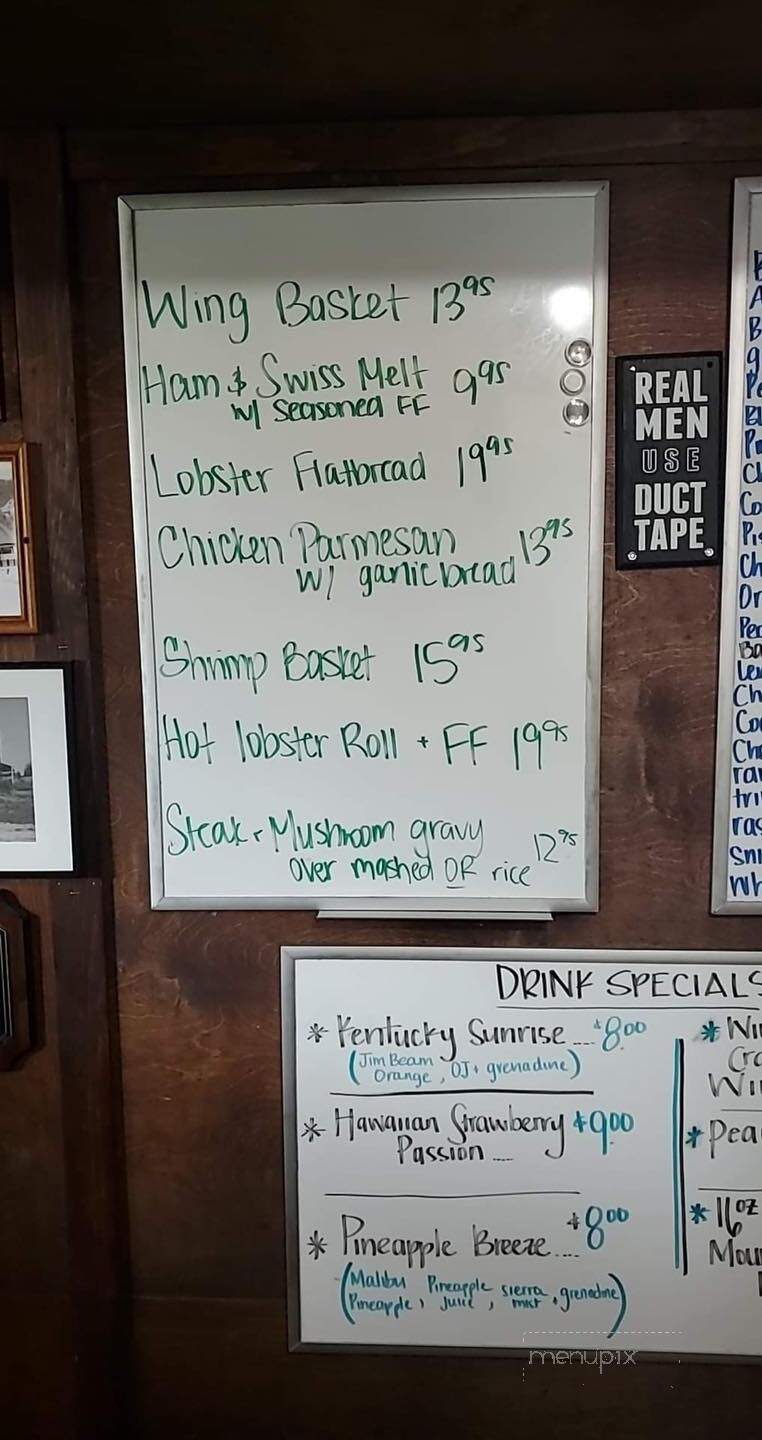 Wing Basket 13 95
Ham & Swiss Melt 9 95
w/ Seasoned FF
Lobster Flatbread 19 95
Chicken Parmesan 13 95
w/ garlic bread
Shrimp Basket 15 95
Hot lobster Roll + FF 19 95
Steak + Mushroom gravy 12 95
over mashed OR rice
REAL
MEN
USE
DUCT
TAPE
DRINK SPECIALS
* Kentucky Sunrise.... $8.00
(Jim Beam
Orange, OJ + grenadine)
* Hawaiian Strawberry $9.00
Passion ....
* Pineapple Breeze.... $8.00
(Malibu Pineapple sierra
Pineapple, juice, mist + grenadine)
* Win
Cra
Win
* Pea
* 16oz
Mou
menupix